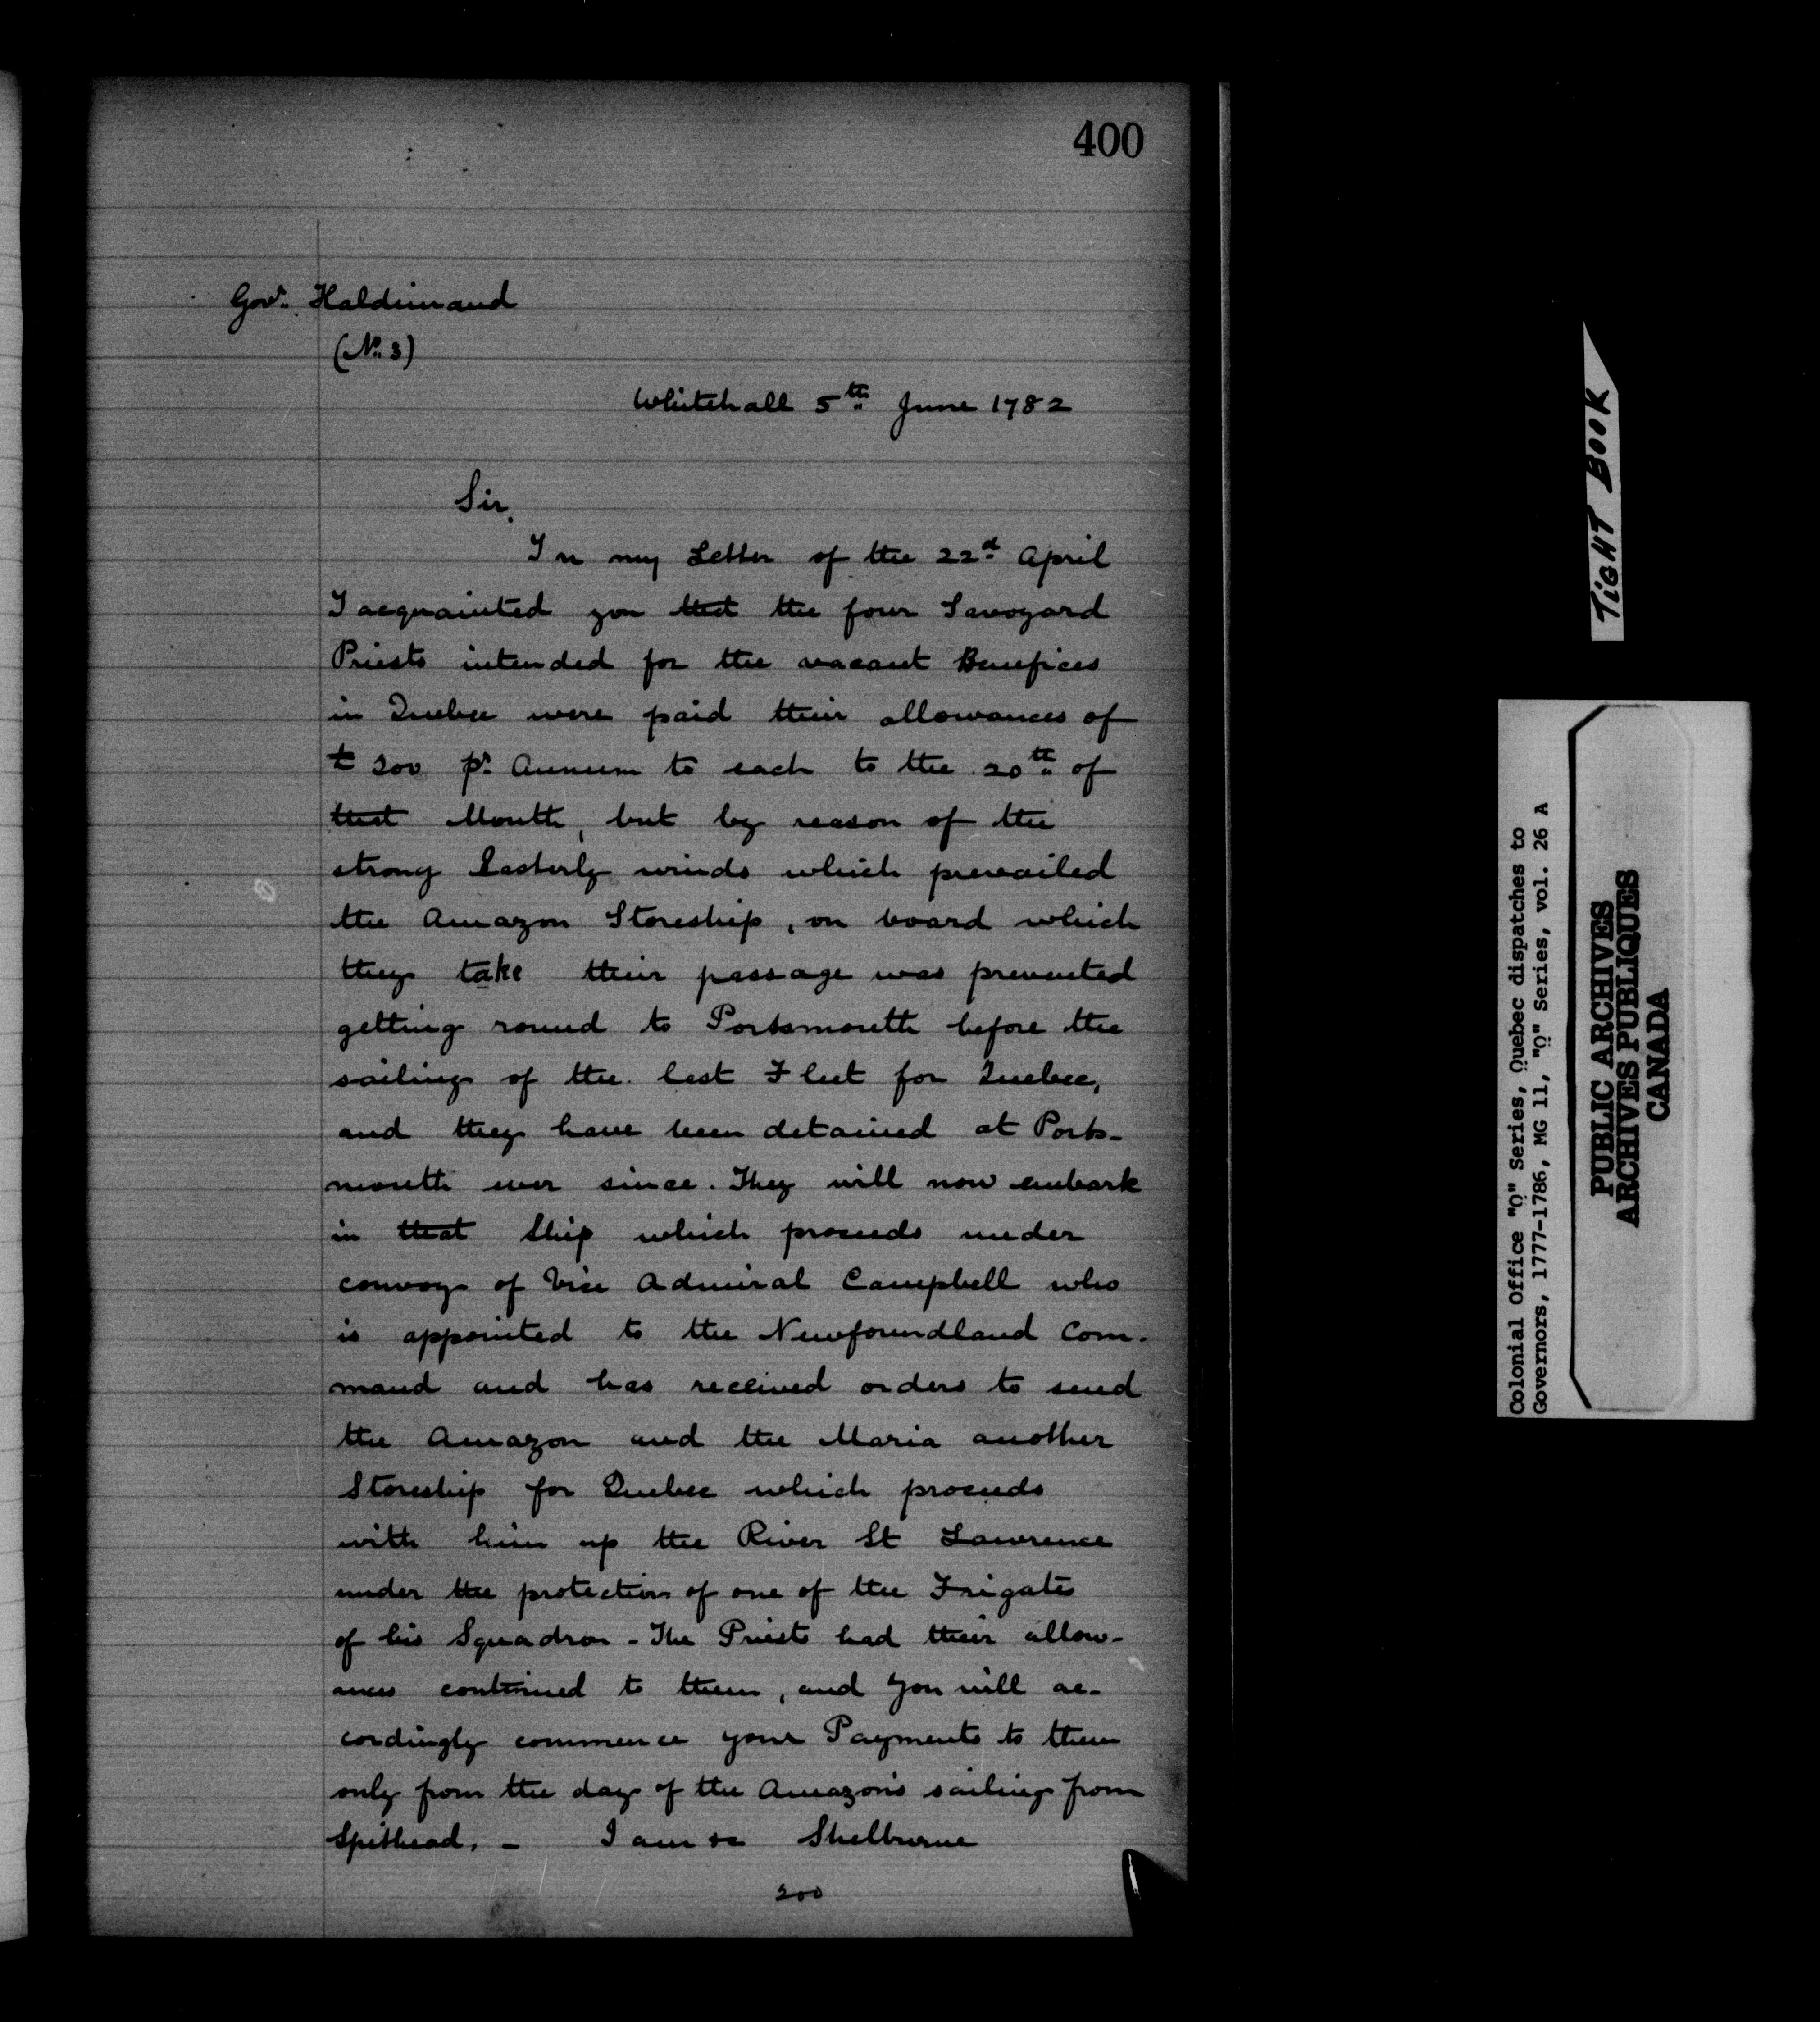 400
Govr. Haldimand
(No. 3)
Whitehall 5th June 1782
Sir,
In my Letter of the 22d April
I acquainted you that the four Savoyard
Priests intended for the vacant Benefices
in Quebec were paid their allowances of
£200 pr Annum to each to the 20th of
that Month, but by reason of the
strong Easterly winds which prevailed
the Amazon Storeship, on board which
they take their passage was prevented
getting round to Portsmouth before the
sailing of the last Fleet for Quebec,
and they have been detained at Ports-
mouth ever since. They will now embark
in that Ship which proceeds under
convoy of Vice Admiral Campbell who
is appointed to the Newfoundland Com-
mand and has received orders to send
the Amazon and the Maria another
Storeship for Quebec which proceeds
with him up the River St Lawrence
under the protection of one of the Frigates
of his Squadron - The Priests had their allow-
ances continued to them, and you will ac-
cordingly commence your Payments to them
only from the day of the Amazon's sailing from
Spithead. - I am &c Shelburne
200
TIGHT BOOK
Colonial Office "Q" Series, Quebec dispatches to
Governors, 1777-1786, MG 11, "Q" Series, vol. 26 A
PUBLIC ARCHIVES
ARCHIVES PUBLIQUES
CANADA